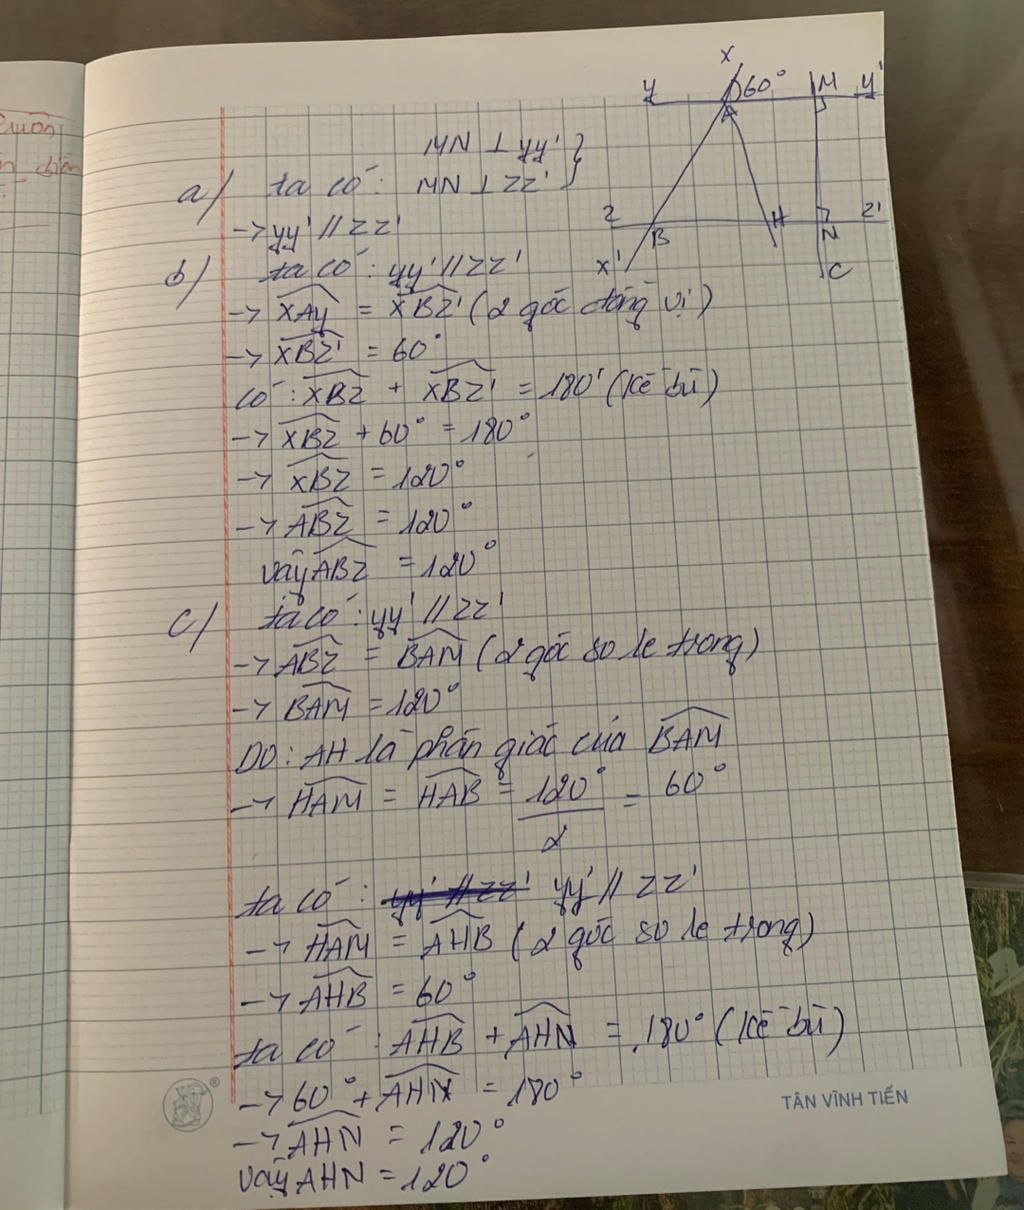 X
y 60° M y'
A
MN ⊥ yy' }
a) ta có: MN ⊥ ZZ'
Z B H N Z'
→ yy' // ZZ'
x' C
b) ta có: yy' // ZZ'
→ XAy = XBZ' (2 góc đồng vị)
→ XBZ' = 60°
Có: XBZ + XBZ' = 180' (Kề bù)
→ XBZ + 60° = 180°
→ XBZ = 120°
→ ABZ = 120°
vậy ABZ = 120°
c) ta có: yy' // ZZ'
→ ABZ = BAM (2 góc so le trong)
→ BAM = 120°
DO: AH là phân giác của BAM
→ HAM = HAB = 120° / 2 = 60°
ta có: yy' // ZZ' yy' // ZZ'
→ HAM = AHB (2 góc so le trong)
→ AHB = 60°
ta có: AHB + AHN = 180° (Kề bù)
→ 60° + AHN = 180°
→ AHN = 120°
vậy AHN = 120°
TÂN VĨNH TIẾN